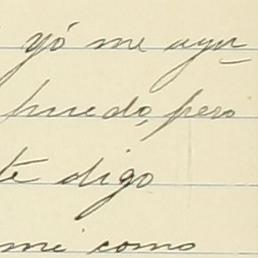 yó me ayu
puedo, pero
te digo
mi como